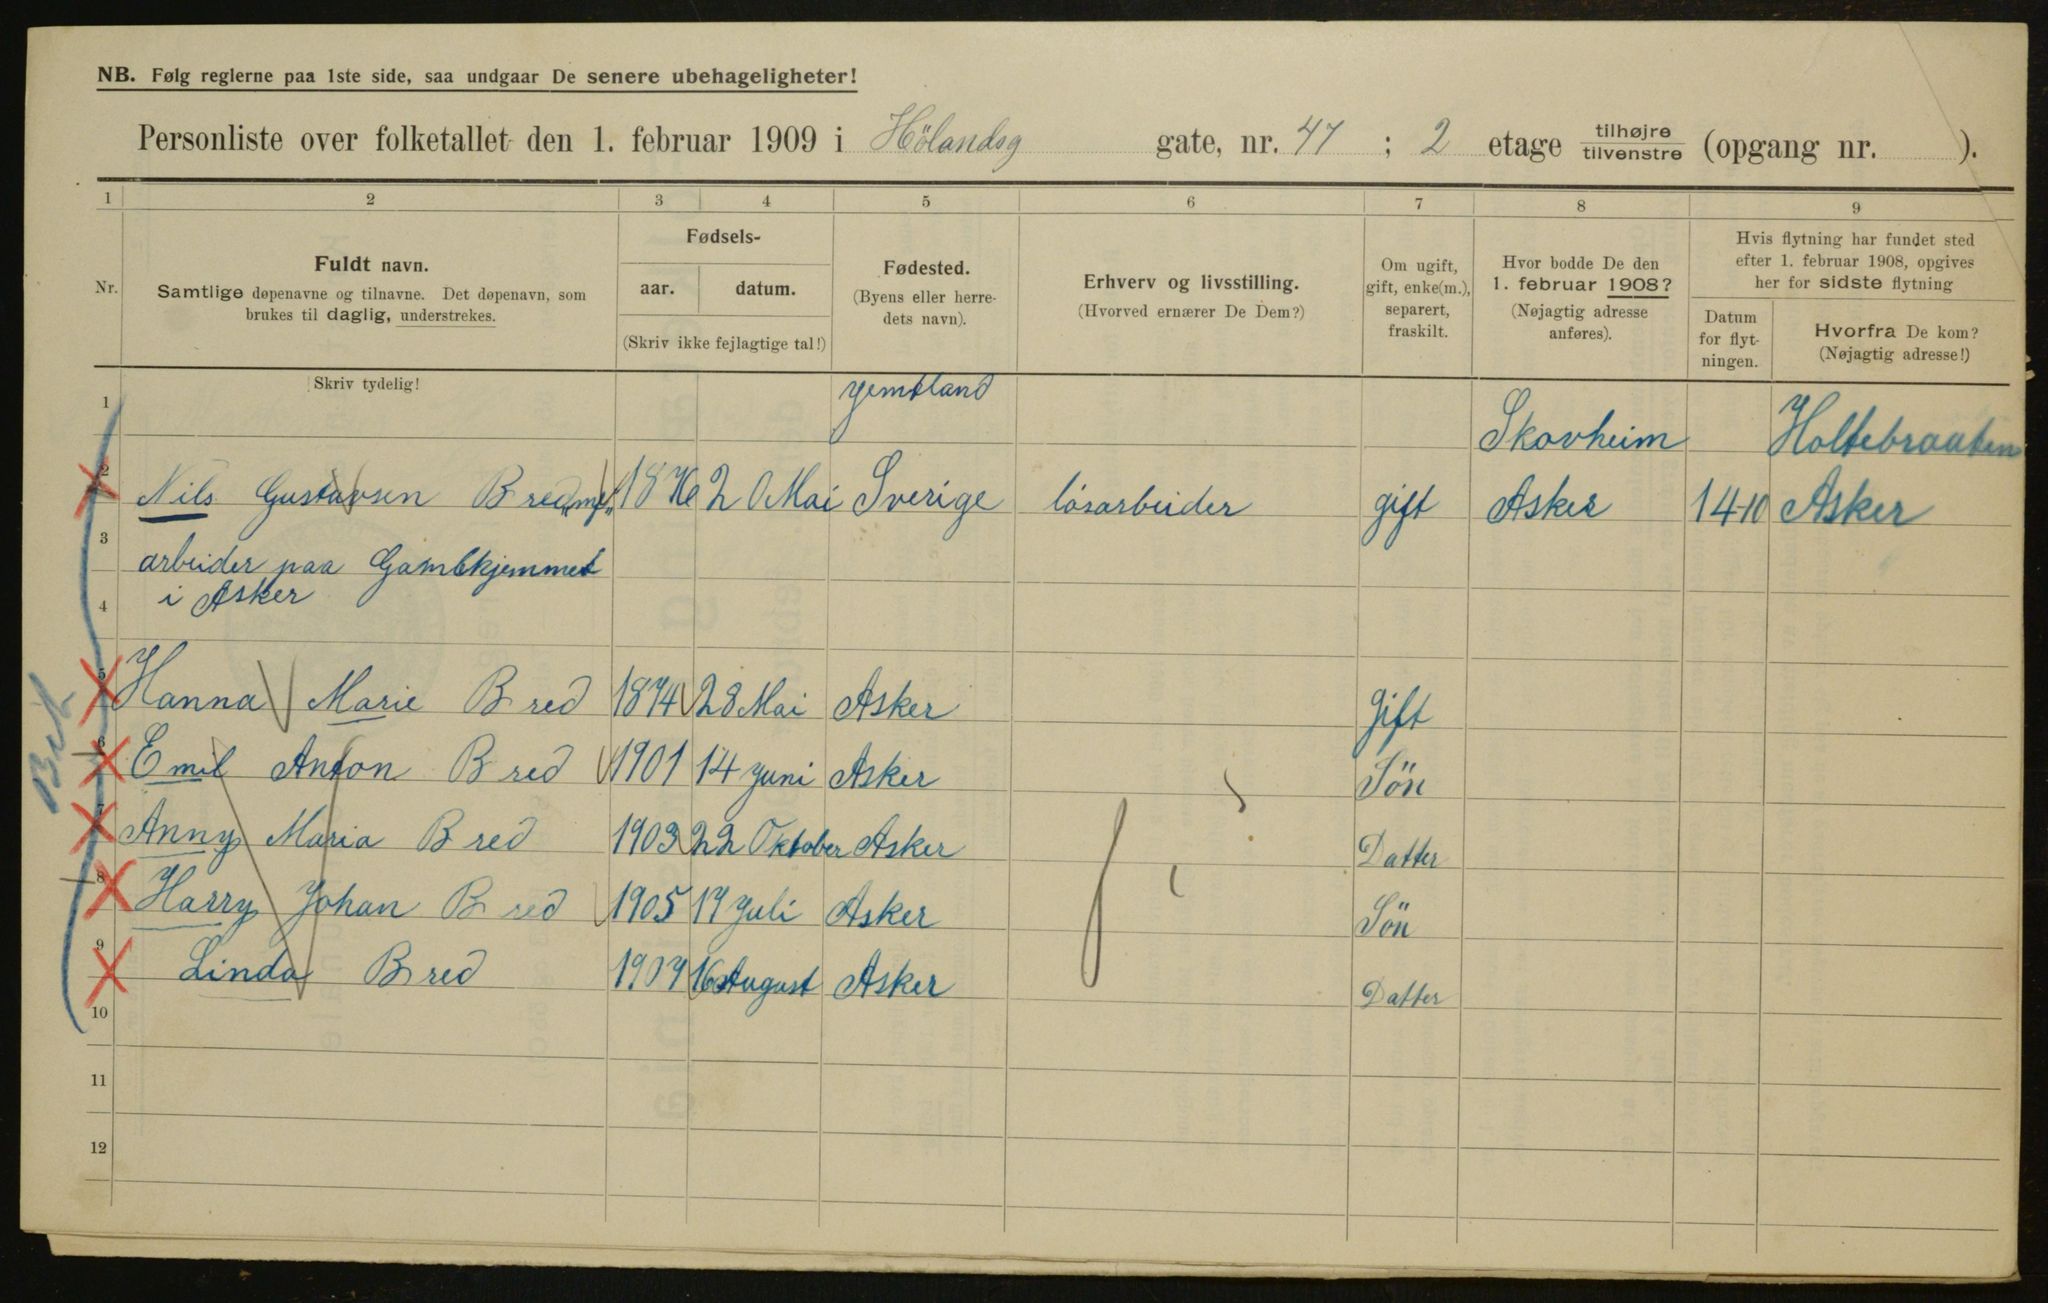 NB. Følg reglerne paa 1ste side, saa undgaar De senere ubehageligheter!
Personliste over folketallet den 1. februar 1909 i Hölandsg gate, nr. 47 ; 2 etage tilhøjre/tilvenstre (opgang nr. ).
1 2 3 4 5 6 7 8 9
Nr.
Fuldt navn.
Samtlige døpenavne og tilnavne. Det døpenavn, som
brukes til daglig, understrekes.
Fødsels-
aar. datum.
(Skriv ikke fejlagtige tal!)
Fødested.
(Byens eller herre-
dets navn).
Erhverv og livsstilling.
(Hvorved ernærer De Dem?)
Om ugift,
gift, enke(m.),
separert,
fraskilt.
Hvor bodde De den
1. februar 1908?
(Nøjagtig adresse
anføres).
Hvis flytning har fundet sted
efter 1. februar 1908, opgives
her for sidste flytning
Datum
for flyt-
ningen.
Hvorfra De kom?
(Nøjagtig adresse!)
Skriv tydelig!
1 Yemtland Skovheim Holtebraaten
2 Nils Gustavsen Bred 2 Mai Sverige lösarbeider gift Asker 14-10 Asker
3 arbeider paa
4 i Asker
5 Hanna Marie Bred 1874 28 Mai Asker Gift
6 Emil Anton Bred 1901 14 Yuni Asker Sön
7 Anny Maria Bred 1903 22 Oktober Asker Datter
8 Harry Yohan Bred 1905 17 Yuli Asker Sön
9 Linda Bred 1907 16 August Asker Datter
10
11
12